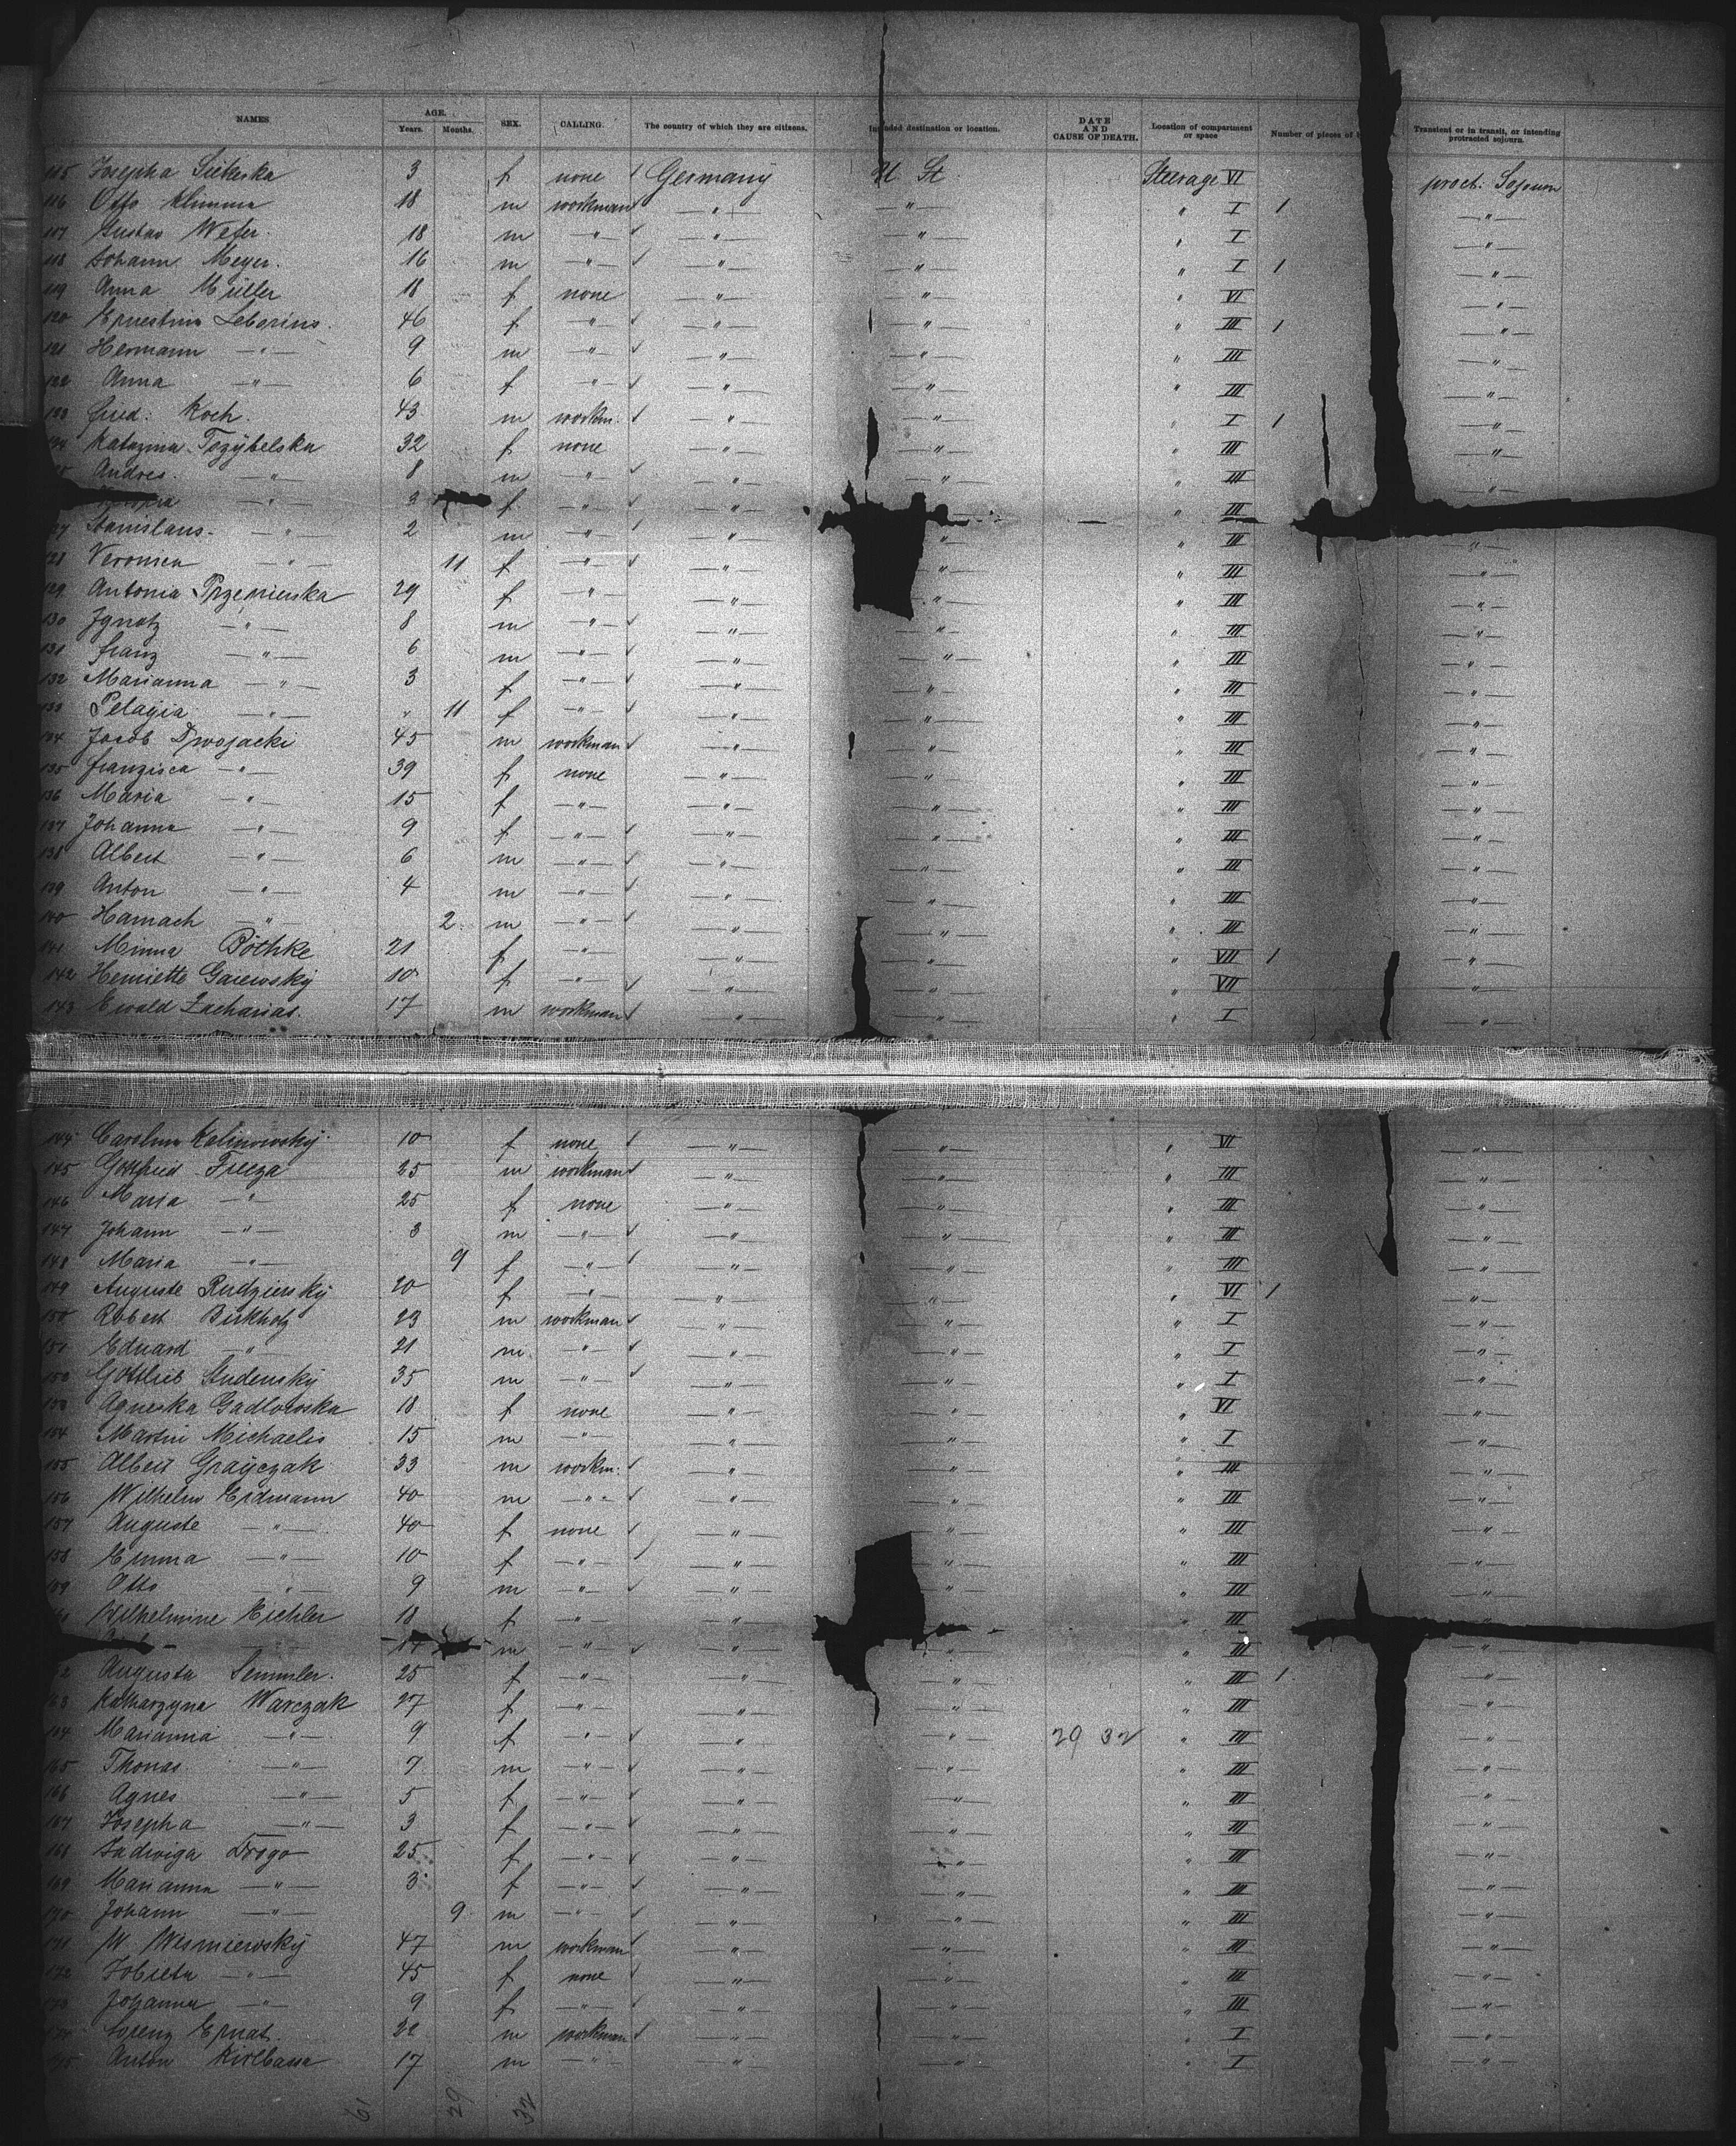 NAMES AGE. Years. Months. SEX. CALLING. The country of which they are citizens. Intended destination or location. DATE AND CAUSE OF DEATH. Location of compartment or space Number of pieces of Transient or in transit, or intending protracted sojourn.
115 Josepha Siekerska 3 f none Germany U St Steerage VI proct. Sojourn
116 Otto Klimma 18 m workman " " " I 1 "
117 Gustav Wefer. 18 m " " " " I "
118 Johann Meyer. 16 m " " " " I 1 "
119 Anna Müller 18 f none " " " VI "
120 Ernestine Leborius. 46 f " " " " III 1 "
121 Hermann " 9 m " " " " III "
122 Anna " 6 f " " " " III "
123 Fried: Koch. 43 m workm. " " " I 1 "
124 Katarzina 32 f none " " " III "
125 Andres. " 8 m " " " " III "
" 3 f " " " III
127 Stanislaus. " 2 m " " " " III "
128 Veronica " 11 f " " " " III "
129 Antonia Przemierska 29 f " " " " III "
130 Ignatz " 8 m " " " " III "
131 Franz " 6 m " " " " III "
132 Marianna " 3 f " " " " III "
133 Pelagia " " 11 f " " " " III "
134 Jacob Dwojacki 45 m workman " " " III "
135 Franzisca " 39 f none " " " III "
136 Maria " 15 f " " " " III "
137 Johanna " 9 f " " " " III "
138 Albert " 6 m " " " " III "
139 Anton " 4 m " " " " III "
140 Hamach " 2 m " " " " III "
141 Minna Böthke 21 f " " " " VII 1 "
142 Henriette Gaiewsky 10 f " " " " VII "
143 Ewald Zacharias. 17 m workman " " " I "
144 Carolina Kalinowsky. 10 f none " " " VI "
145 Gottfried 25 m workman " " " III "
146 Maria " 25 f none " " " III "
147 Johann " 3 m " " " " III "
148 Maria " 9 f " " " " III "
149 Auguste Rudziensky 20 f " " " " VI 1 "
150 Robert Birkholz 23 m workman " " " I "
151 Eduard " 21 m. " " " " I "
152 Gottlieb Studensky 35 m " " " " I "
153 Agneska Gadlowska 18 f none " " " VI "
154 Martin Michaelis 15 m " " " " I "
155 Albert Grayczak 33 m workm. " " " III "
156 Wilhelm Erdmann 40 m " " " " III "
157 Auguste " 40 f none " " " III "
158 Emma " 10 f " " " " III "
159 Otto " 9 m " " " " III "
Wilhelmine Richler 18 f " " " III "
m " " " " III "
Augusta Semmler. 25 f " " " " III 1 "
163 Katharzyna Warczak 27 f " " " " III "
164 Marianna " 9 f " " " 29 32 " III "
165 Thomas " 7 m " " " " III "
166 Agnes " 5 f " " " " III "
167 Josepha " 3 f " " " " III "
168 Jadwiga Drogo 25 f " " " " III "
169 Marianna " 3 f " " " " III "
170 Johann " 9 m " " " " III "
171 W. Wisniewsky 47 m workman " " " III "
172 " 45 f none " " " III "
173 Johanna " 9 f " " " " III "
174 Lorenz Ernat. 22 m workman " " " I "
175 Anton Kielbassa 17 m " " " " I "
61 29 32